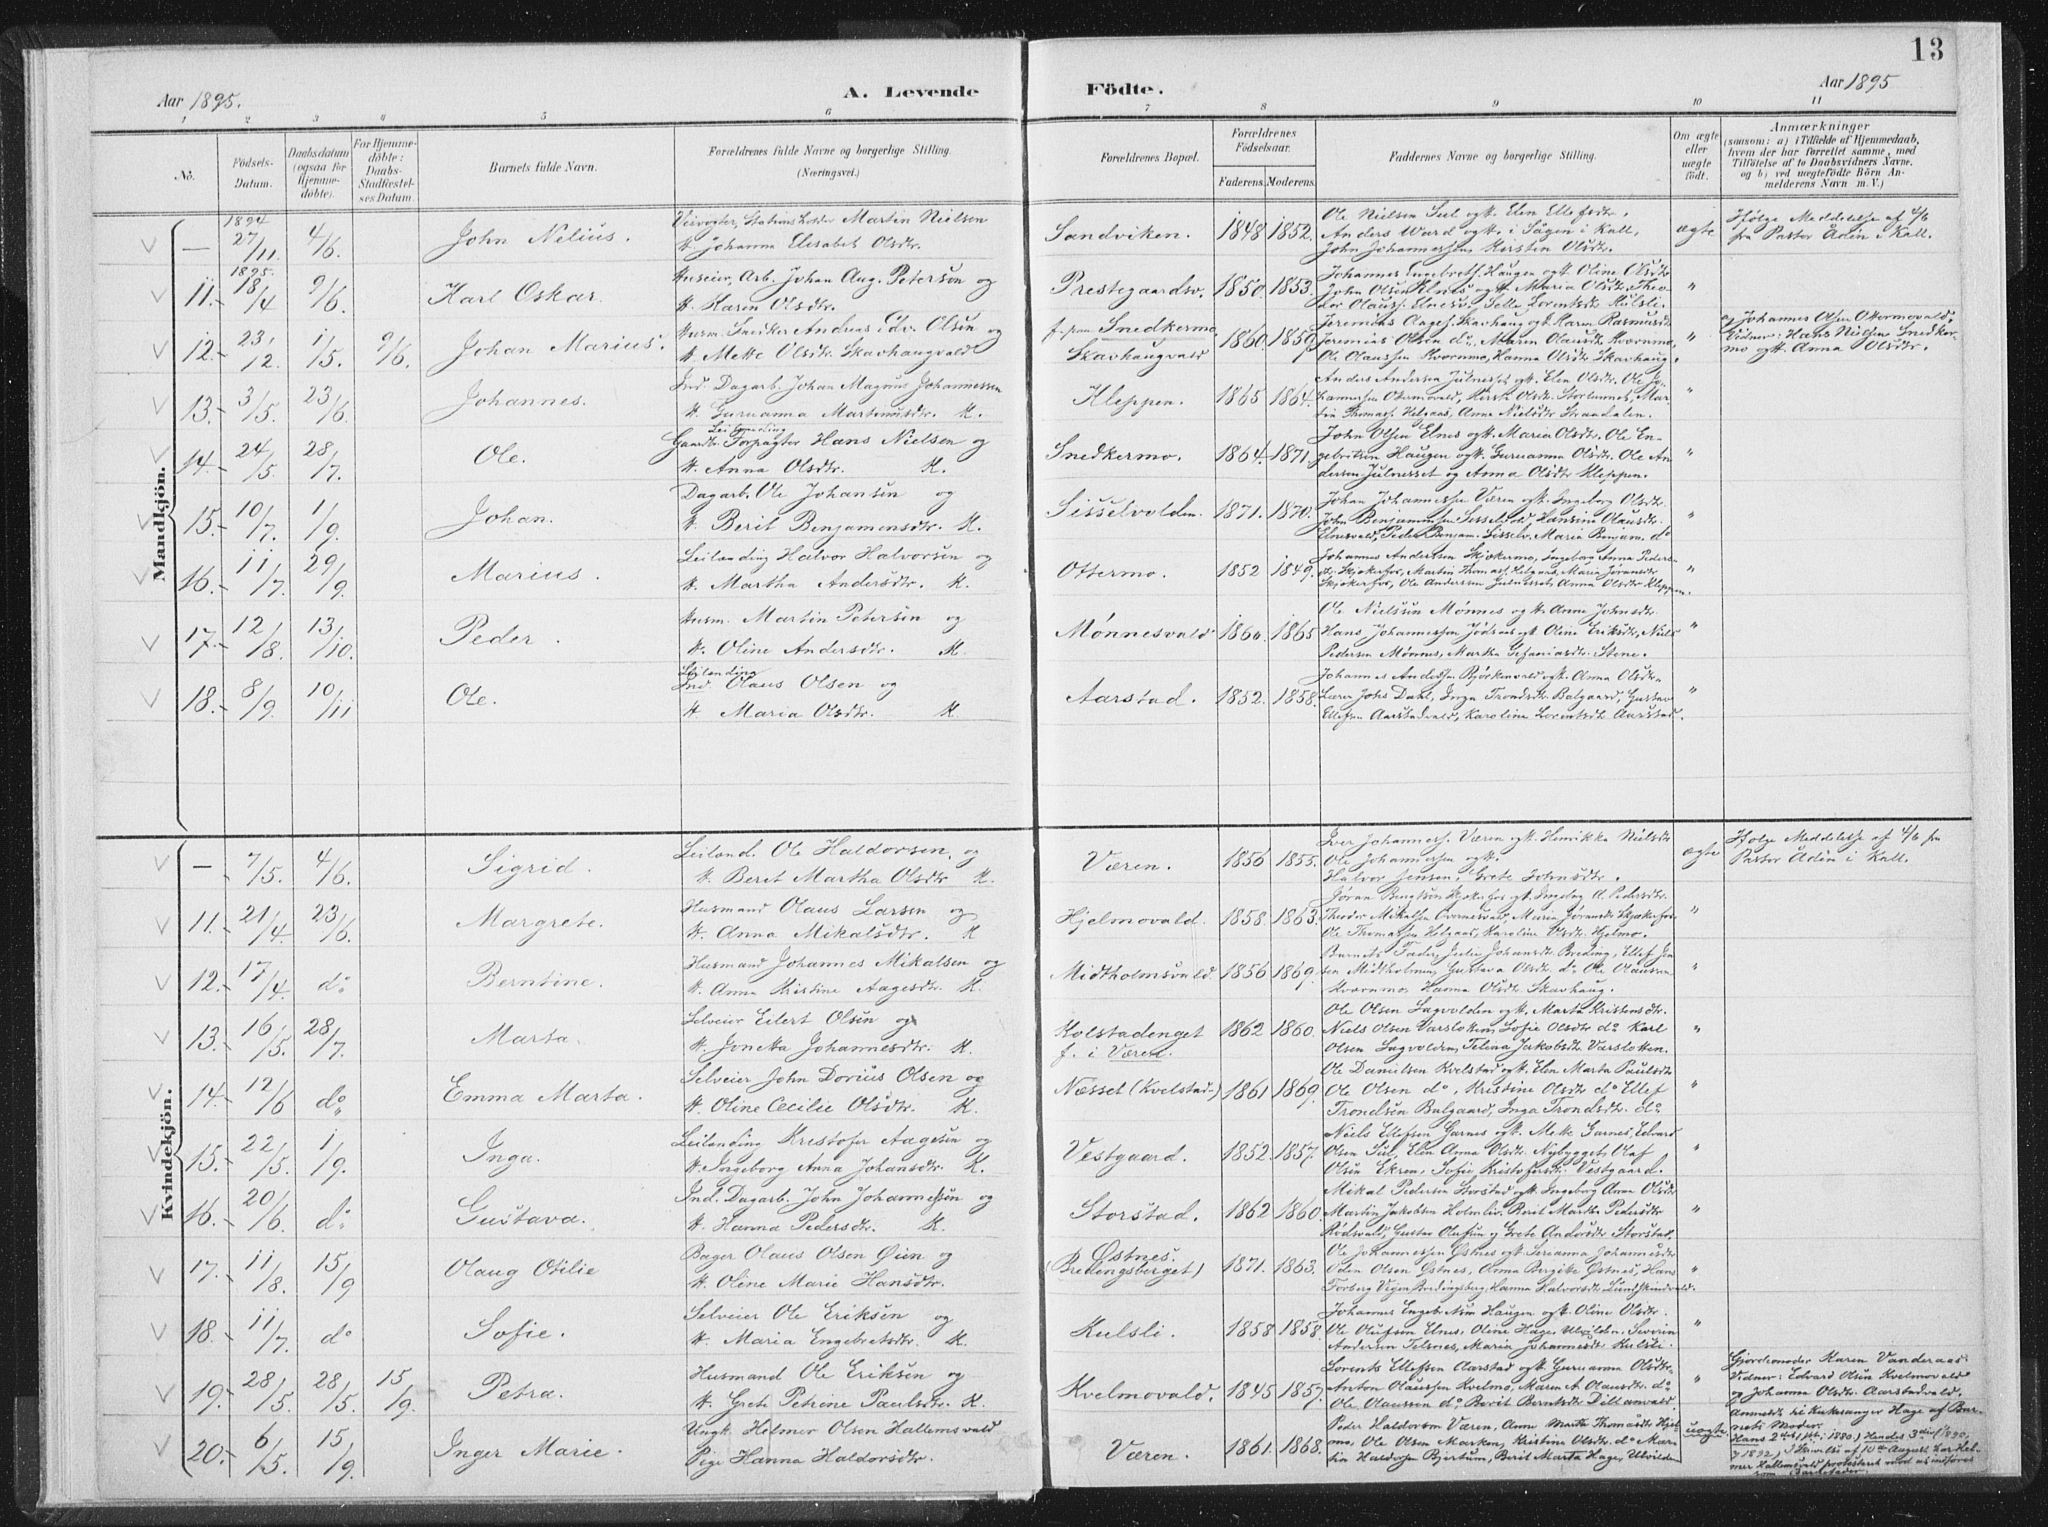 13
Aar 1895.
A. Levende
Födte.
Aar 1895
1 2 3 4 5 6 7 8 9 10 11
No.
Födsels-Datum.
Daabsdatum (ogsaa for Hjemme-döbte).
For Hjemme-döbte: Daabs-Stadfæstel-ses Datum.
Barnets fulde Navn.
Forældrenes fulde Navne og borgerlige Stilling. (Næringsvei.)
Forældrenes Bopæl.
Forældrenes Födselsaar.
Faderens. Moderens.
Faddernes Navne og borgerlige Stilling.
Om ægte eller uægte födt.
Anmærkninger
(saasom: a) i Tilfælde af Hjemmedaab, hvem der har forrettet samme, med Tilföielse af to Daabsvidners Navne, og b) ved uægtefödte Börn An-melderens Navn m. V.)
Mandkjön.
— 1894 27/11 4/6. John Nelius. Veivogter, Stationsholder Martin Nielsen
H. Johanna Elisabet Olsdtr. Sandviken. 1848 1852. Ole Nielsen Suul og H. Elen Ellefsdtr,
Anders Ward og H. i Sägen i Kall,
John Johannessen, Kirstin Olsdtr. ægte Ifölge Meddelelse af 4/6
fra Pastor Ådin i Kall.
11. 1895. 18/4 9/6. Karl Oskar. Huseier, Arb. Johan Aug. Peterson og
H. Karen Olsdtr. Prestegaardsv. 1850. 1853. Johannes Engebrets. Haugen og H. Oline Olsdtr
John Olsen Elnes og H. Maria Olsdtr. "
12. 23/12. 1/5. 9/6. Johan Marius. Husm. Snedker Andreas Edv. Olsen og
H. Mette Olsdtr. Skavhaugvald f. paa Snedkermo,
Skavhaugvald 1860. 1859. Jeremias Aages. Skavhaug og H. Maren Rasmusdtr
Jeremias Olsen do, Maren Olausdtr. Kvernmo,
Ole Olaussen Kvernmo, Hanna Olsdtr Skavhaug. " af Johannes Olsen Ottermovald,
Vidner: Hans Nielsen Snedker-
mo og H. Anna Olsdtr.
13. 3/5. 23/6. Johannes. Ind. Dagarb. Johan Magnus Johannessen
H. Guruanna Martinusdtr. K. Kleppen. 1865 1864. Anders Andersen Julnesset og H. Elen Olsdtr. Ole Jo-
hannessen Ottermovald, "
14. 24/5. 28/7. Ole. Leilending
Gaardbr. Forpagter Hans Nielsen og
H. Anna Olsdtr. K. Snedkermo. 1864. 1871. John Olsen Elnes og H. Maria Olsdtr. Ole En-
gebriksen Haugen og H. Guruanna Olsdtr. Ole An-
dersen Julnesset og Anna Olsdtr Kleppen. "
15. 10/7. 1/9. Johan. Dagarb. Ole Johansen og
H. Berit Benjamensdtr. K. Sisselvolden. 1871. 1870. Johan Johannessen Væren og H. Ingeborg Olsdtr.
John Benjaminsen Sisselvold, Hansine Olausdtr.
Elnesvald, Peder Benjam. Sisselv. Maria Benjam. do "
16. 11/7. 29/9. Marius. Leilending Halvor Halvorsen og
H. Martha Andersdtr. K. Ottermo. 1852 1849. Johannes Andersen Skjækermo, Ingeborg Anna Peders-
dtr. Skjækerfos, Martin Thomas. Helgaas, Maria Jöransdtr
Skjækerfos, Ole Anderssen Julnesset, Anna Olsdtr Kleppen. "
17. 12/8. 13/10. Peder. Husm. Martin Petersen og
H. Oline Andersdtr. K. Mønnesvald 1860. 1865 Ole Nielsen Mønnes og H. Anne Johnsdtr.
Hans Johannessen Jødsaas og H. Oline Eriksdtr, Niels
Pedersen Mønnes, Martha Stefaniasdtr. Stene. "
18. 8/9. 10/11 Ole. Leilending
Ind. Olaus Olsen og
H. Maria Olsdtr. K. Aarstad. 1852. 1858. Johannes Anderssen Bjørkenvald og H. Anna Olsdtr.
Lærer Johs Dahl, Inga Trondsdtr. Balgaard, Gustav
Ellefsen Aarstadvald, Karoline Lorentsdtr. Aarstad. "
Kvindekjön.
— 7/5. 4/6. Sigrid. Leilend. Ole Haldorsen, og
H. Berit Martha Olsdtr K. Væren. 1856 1855. Iver Johanness. Væren og H. Henrikka Nielsdtr
Ole Johannessen og H.
Halvor Jensen, Grete Johnsdtr. ægte Ifölge Meddelelse af 4/6 fra
Pastor Ådin i Kall.
11. 21/4. 23/6. Margrete. Husmand Olaus Larsen og
H. Anna Mikalsdtr. K Hjelmovald. 1858. 1863. Jøran Bengtson Skjækerfos og H. Ingebog A. Pedersdtr.
Theodor Mikalsen Overnesvald, Maria Jöransdtr Skjækerfos,
Ole Thomassen Helgaas, Karoline Olsdtr. Hjelmo. "
12. 17/4. do Berntine. Husmand Johannes Mikalsen og
H. Anna Kristine Aagesdtr. K. Midtholmsvald. 1856 1869. Barnets Fader, Julie Johansdtr. Breding, Ellef Jen-
sen Midtholmen, Gustava Olsdtr. do Ole Olaussen
Kvernmo, Hanna Olsdtr. Skavhaug. "
13. 16/5. 28/7. Marta. Selveier Eilert Olsen og
H. Jonetta Johannesdtr. K. Kolstadenget
f. i Væren. 1862 1860. Ole Olsen Sagvolden og H. Marta Kristensdtr.
Niels Olsen Varslotten, Sofie Olsdtr. do Karl
Olsen Sagvolden, Telina Jakobsdtr. Varslotten. "
14. 12/6 do Emma Marta. Selveier John Dorius Olsen og
H. Oline Cecilie Olsdtr. K. Næsset (Kvelstad-) 1861 1869. Ole Danielsen Kvelstad og H. Elen Marta Paulsdtr
Ole Olsen do, Kristine Olsdtr. do Ellef
Trondsen Balgaard, Inga Trondsdtr. do "
15. 22/5. 1/9. Inga. Leilending Kristofer Aagesen og
H. Ingeborg Anna Johansdtr. K. Vestgaard. 1852. 1857. Niels Ellefsen Garnes og H. Mette Garnes, Edvard
Olsen Suul, Elen Anna Olsdtr. Nybygget, Olaf
Olsen Ekren, Sofie Kristofersdtr. Vestgaard. "
16. 20/6. do Gustava. Ind. Dagarb. John Johannessen og
H. Hanna Pedersdtr. K. Storstad. 1862 1860. Mikal Pedersen Storstad og H. Ingeborg Anna Olsdtr
Martin Jakobsen Holmlis, Berit Martha Pedersdtr
Rödsvald, Gustav Olufsen og Grete Andersdtr Storstad. "
17. 11/8. 15/9 Olaug Otilie Bager Olaus Olsen Øien og
H. Oline Marie Hansdtr. Østnes.
(Bredingsberget) 1871. 1863. Ole Johannessen Østnes og H. Serianna Johannesdtr
Oden Olsen Østnes, Anna Bergitte Østnes, Hans
Forberg Vigen Bredingsberg, Hanna Halvorsdtr. Lundskindvald. "
18. 11/7. do Sofie. Selveier Ole Eriksen og
H. Maria Engebretsdtr. K. Kulsli. 1858 1858. Johannes Engebretsen Haugen og H. Oline Olsdtr.
Ole Olufsen Elnes, Oline Hage, Ulvilden, Severin
Andersen Telsnes, Maria Johannesdtr Kulsli. "
19. 28/5. 28/5. 15/9. Petra. Husmand Ole Eriksen og
H. Grete Petrine Paulsdtr. K. Kvelmovald. 1845 1857. Lorents Ellefsen Aarstad og H. Guruanna Olsdtr,
Anton Olaussen Kvelmo, Maren A. Olausdtr. do
Ole Olaussen do Berit Berntsdtr Tillanvald. " Gjordemoder Karen Vanderaas.
Vidner: Edvard Olsen Kvelmovald
og Johanna Olsdtr. Aarstadvald.
20. 6/5. 15/9. Inger Marie. Ungk. Helmer Olsen Hallemsvald
Pige Hanna Haldorsdtr. Væren. 1861. 1868. Peder Haldorsen Væren, Anne Marta Thomasdtr Hjel-
mo, Ole Olsen Marken, Kristine Olsdtr. do Mar-
tin Haldorsen Bjertum, Berit Marta Hage, Ulvilden uægte Anmeldt til Kirkesanger Hage af Bar-
nets Moder.
Hans 2det, 1ste i 1880. Hendes 3die 1890,
og 1892. I Skrivelse af 10de August har Hel-
mer Hallemsvald protesteret mod at indföres
som Barnefader.